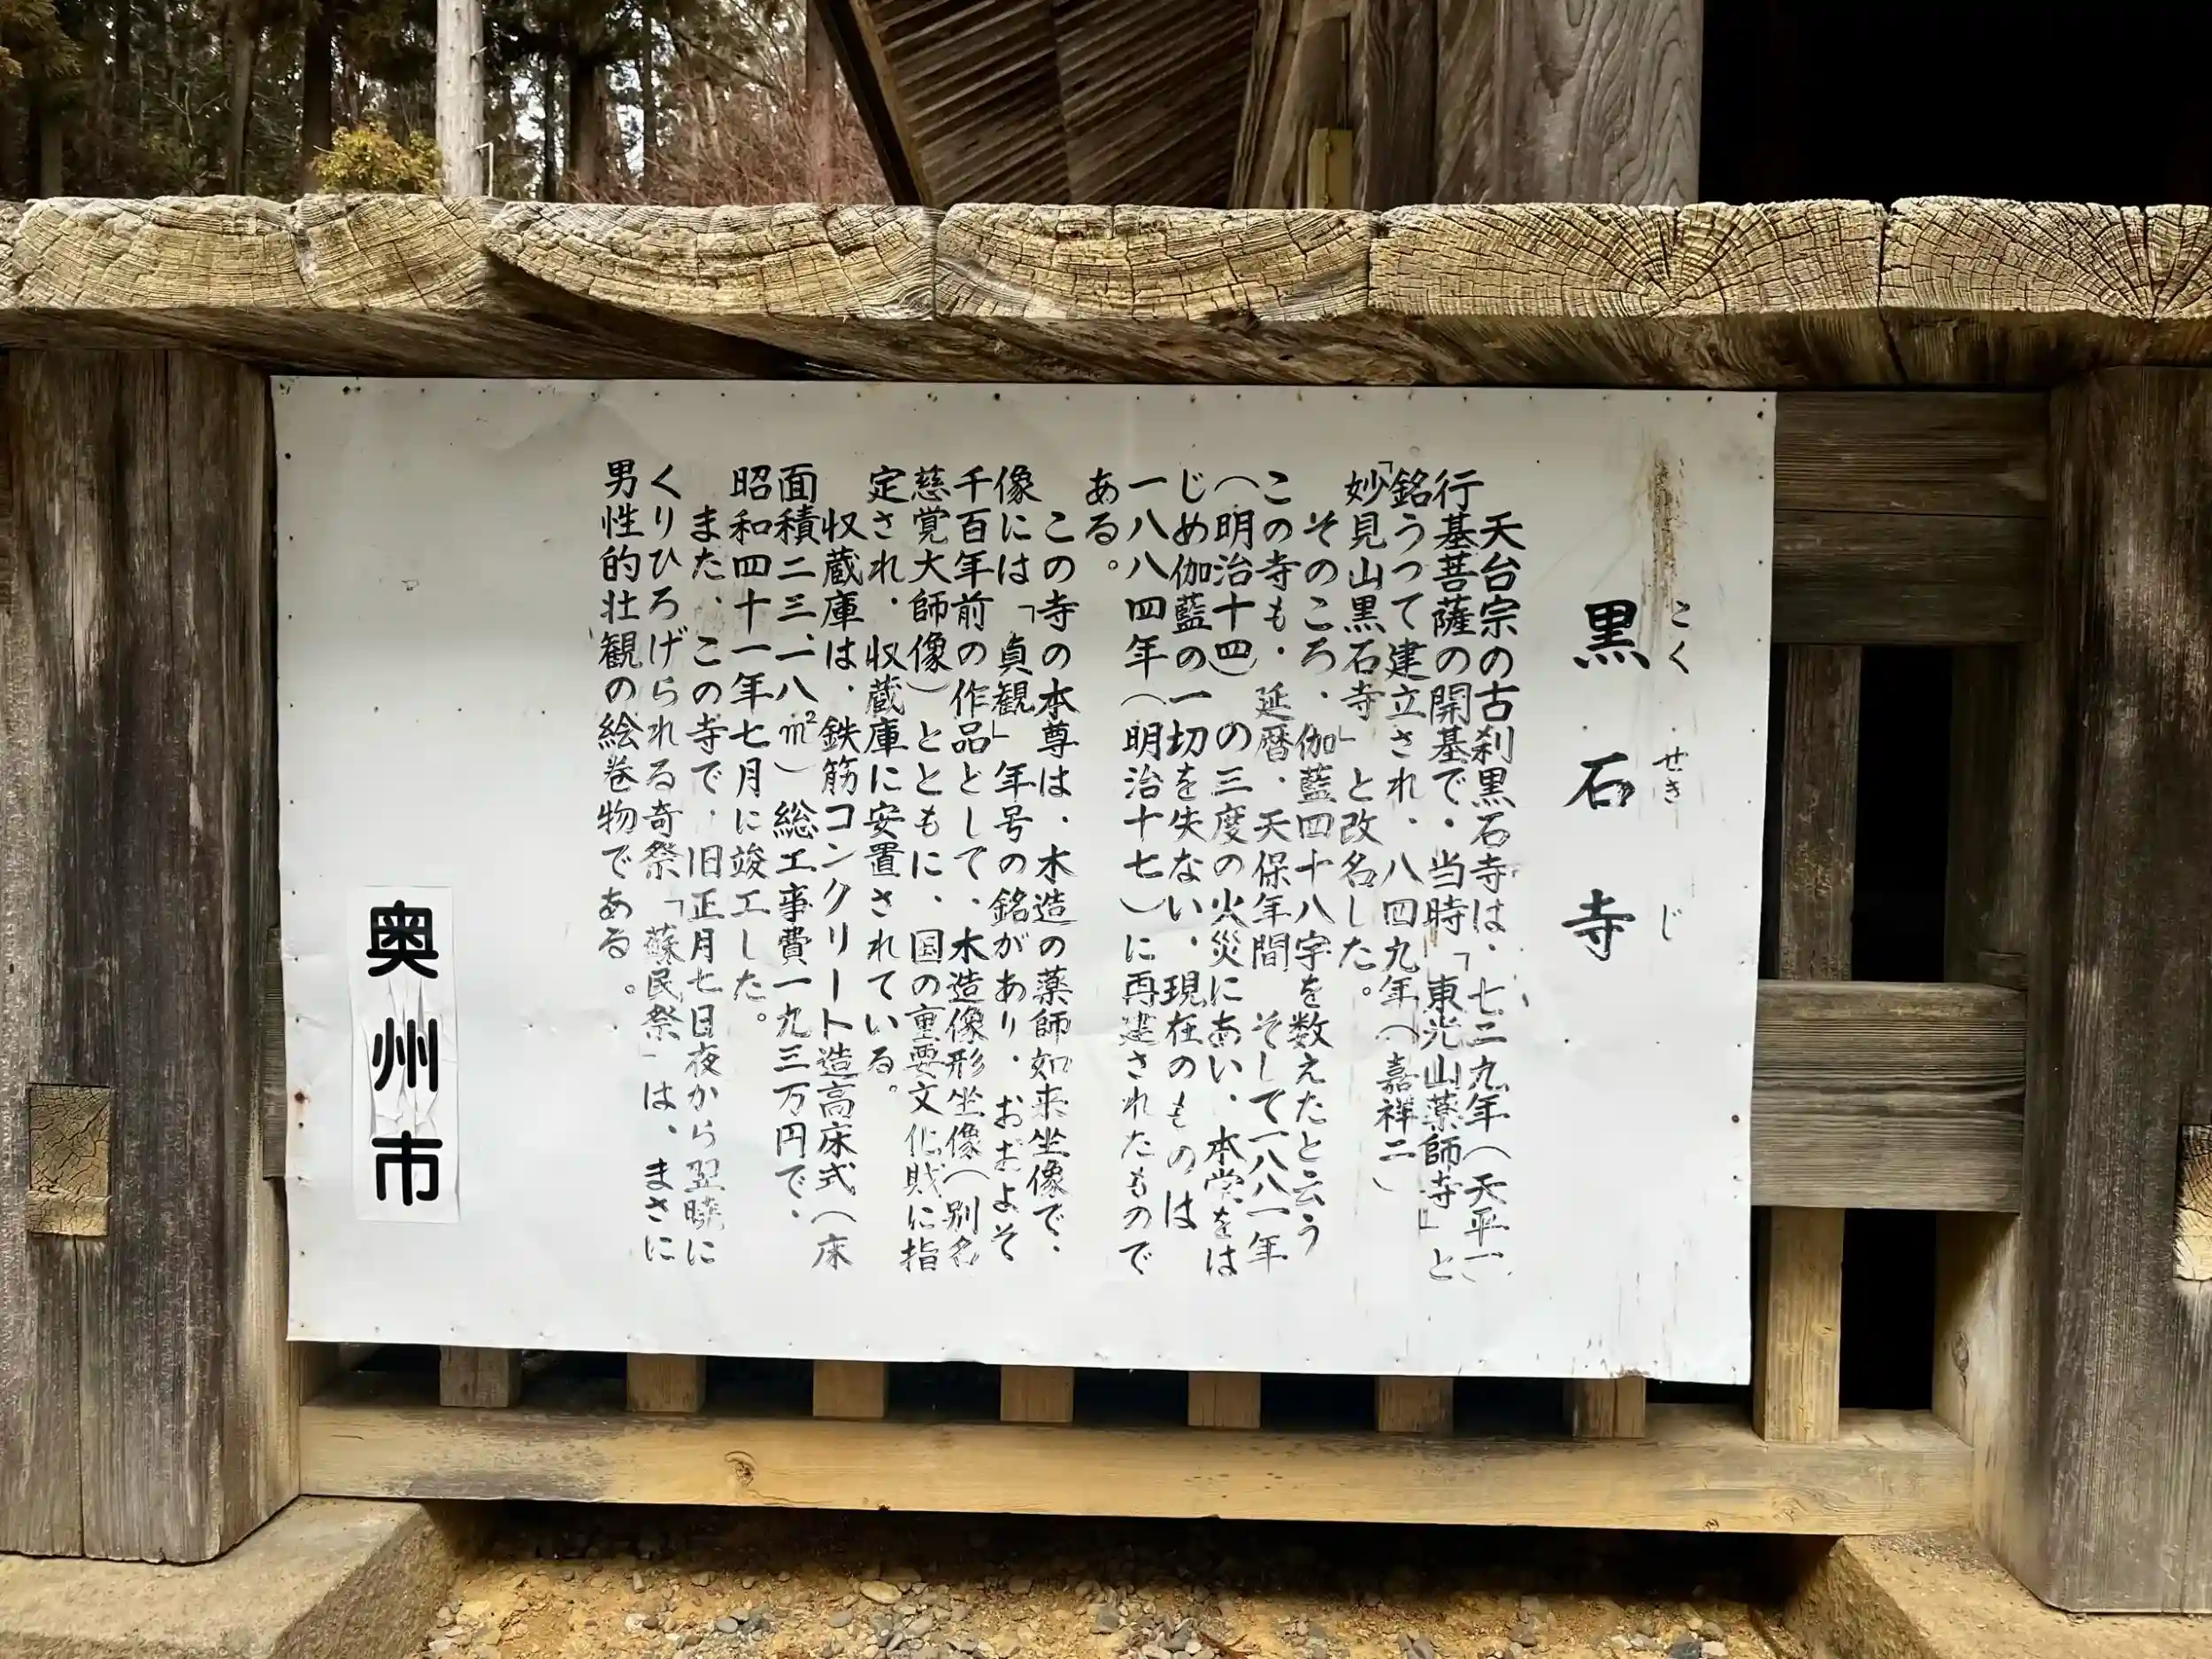 こくせきじ
黒石寺
天台宗の古刹黒石寺は、七二九年(天平一)
行基菩薩の開基で、当時「東光山薬師寺」と
銘うって建立され、八四九年(嘉祥二)
「妙見山黒石寺」と改名した。
そのころ、伽藍四十八宇を数えたと云う
この寺も、延暦、天保年間 そして一八八一年
(明治十四)の三度の火災にあい、本堂をは
じめ伽藍の一切を失ない、現在のものは
一八八四年(明治十七)に再建されたもので
ある。
この寺の本尊は、木造の薬師如来坐像で、
像には「貞観」年号の銘があり、おおよそ
千百年前の作品として、木造像形坐像(別名
慈覚大師像)とともに、国の重要文化財に指
定され、収蔵庫に安置されている。
収蔵庫は、鉄筋コンクリート造高床式(床
面積二三、一八㎡)総工事費一九三万円で、
昭和四十一年七月に竣工した。
また、この寺で、旧正月七日夜から翌暁に
くりひろげられる奇祭「蘇民祭」は、まさに
男性的壮観の絵巻物である。
奥州市